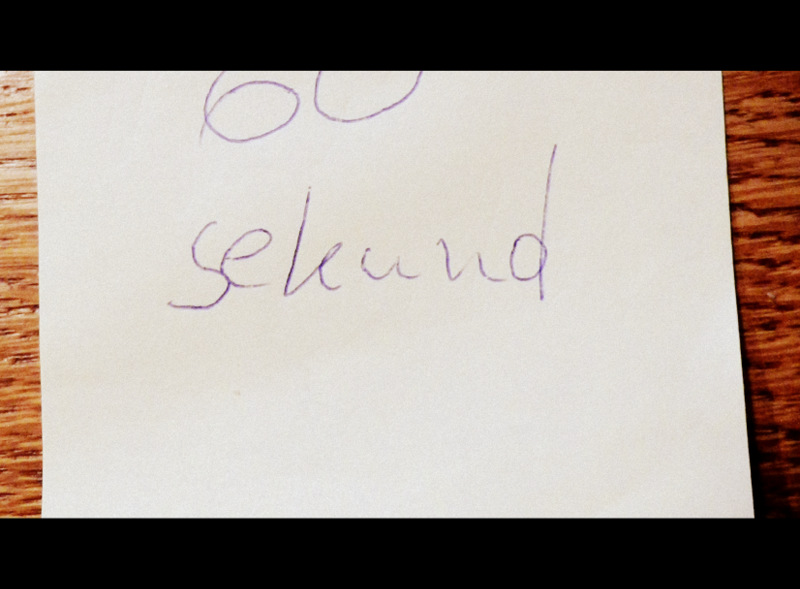 60
sekund